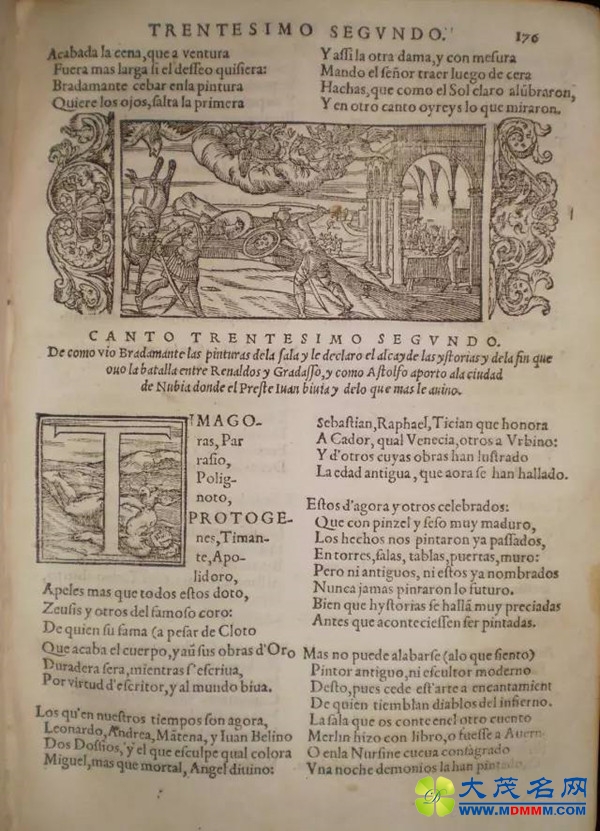 TRENTESIMO SEGVNDO.
176
Acabada la cena, que a ventura
Fuera mas larga si el desseo quisiera:
Bradamante cebar enla pintura
Quiere los ojos, salta la primera
Y assi la otra dama, y con mesura
Mando el señor traer luego de cera
Hachas, que como el Sol claro alũbraron,
Y en otro canto oyreys lo que miraron.
CANTO TRENTESIMO SEGVNDO.
De como vio Bradamante las pinturas dela sala y le declaro el alcayde las ystorias y dela fin que
ouo la batalla entre Renaldos y Gradasso, y como Astolfo aporto ala ciudad
de Nubia donde el Preste Iuan biuia y delo que mas le auino.
TIMAGO-
ras, Par
rasio,
Polig-
noto,
PROTOGE-
nes, Timan-
te, Apo-
lidoro,
Apeles mas que todos estos doto,
Zeusis y otros del famoso coro:
De quien su fama (a pesar de Cloto
Que acaba el cuerpo, y aũ sus obras d'Oro
Duradera sera, mientras s'escriua,
Por virtud d'escritor, y al mundo biua.
Los qu'en nuestros tiempos son agora,
Leonardo, Andrea, Mãtena, y Iuan Belino
Dos Dossios, y el que esculpe qual colora
Miguel, mas que mortal, Angel diuino:
Sebastian, Raphael, Tician que honora
A Cador, qual Venecia, otros a Vrbino:
Y d'otros cuyas obras han lustrado
La edad antigua, que aora se han hallado.
Estos d'agora y otros celebrados:
Que con pinzel y seso muy maduro,
Los hechos nos pintaron ya passados,
En torres, salas, tablas, puertas, muro:
Pero ni antiguos, ni estos ya nombrados
Nunca jamas pintaron lo futuro.
Bien que hystorias se hallã muy preciadas
Antes que aconteciessen ser pintadas.
Mas no puede alabarse (alo que siento)
Pintor antiguo, ni escultor moderno
Desto, pues cede est'arte a encantamient
De quien tiemblan diablos del infierno.
La sala que os conte enel otro cuento
Merlin hizo con libro, o fuesse a Auern
O enla Nursine cueua consagrado
Vna noche demonios la han pintado.
大茂名网
WWW.MDMMM.COM